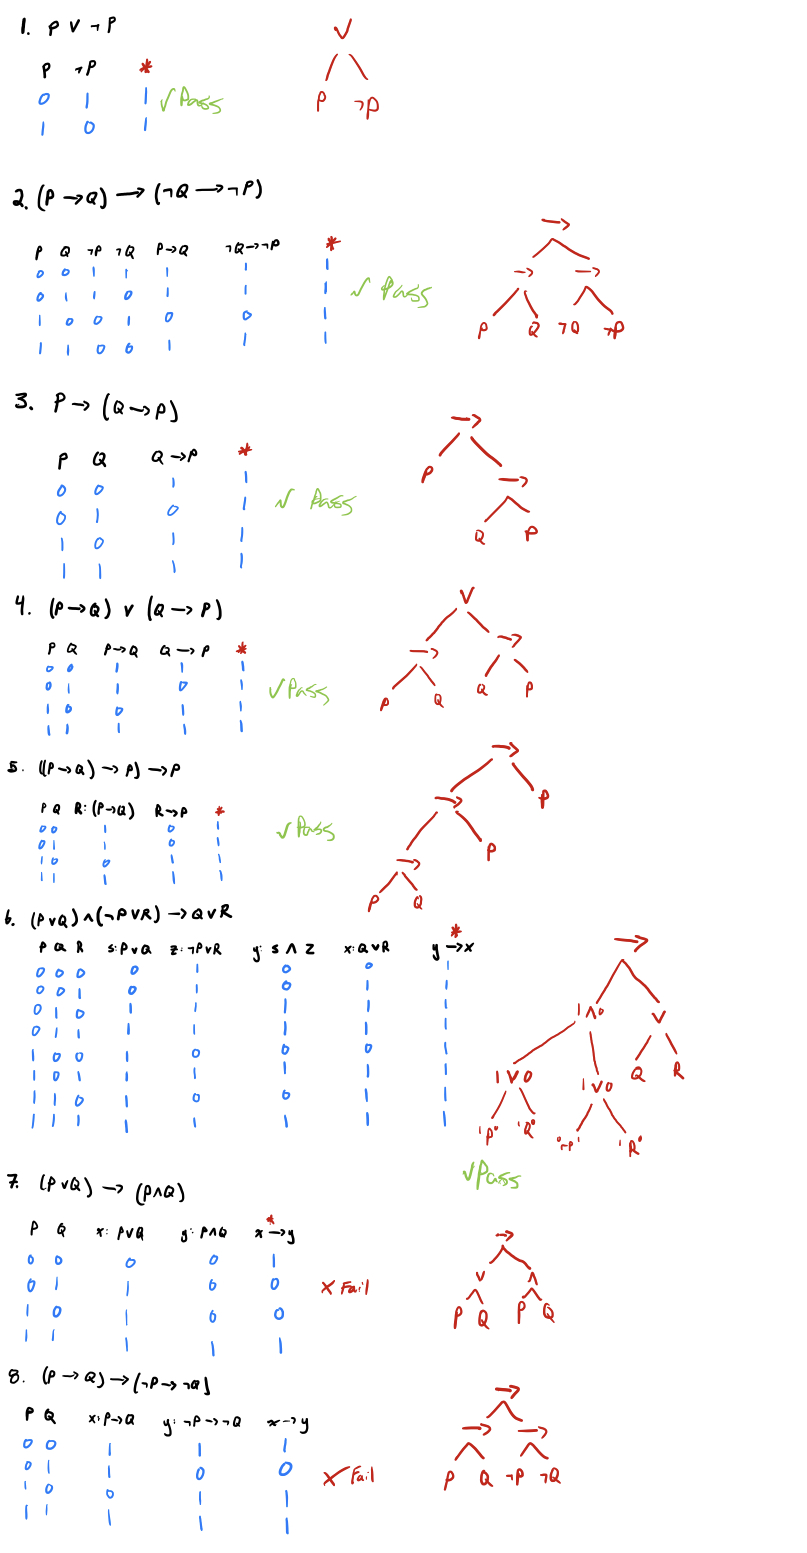 1. P ∨ ¬P
P ¬P *
0 1 1
1 0 1
✓ Pass
∨
P ¬P
2. (P → Q) → (¬Q → ¬P)
P Q ¬P ¬Q P→Q ¬Q→¬P *
0 0 1 1 1 1 1
0 1 1 0 1 1 1
1 0 0 1 0 0 1
1 1 0 0 1 1 1
✓ Pass
→
→ →
P Q ¬Q ¬P
3. P → (Q → P)
P Q Q → P *
0 0 1 1
0 1 0 1
1 0 1 1
1 1 1 1
✓ Pass
→
P →
Q P
4. (P → Q) ∨ (Q → P)
P Q P→Q Q → P *
0 0 1 1 1
0 1 1 0 1
1 0 0 1 1
1 1 1 1 1
✓ Pass
∨
→ →
P Q Q P
5. ((P → Q) → P) → P
P Q R: (P→Q) R→P *
0 0 1 0 1
0 1 1 0 1
1 0 0 1 1
1 1 1 1 1
✓ Pass
→
→ P
→ P
P Q
6. (P∨Q) ∧ (¬P∨R) → Q∨R
P Q R S: P∨Q Z: ¬P∨R y: S ∧ Z x: Q∨R y → x *
0 0 0 0 1 0 0 1
0 0 1 0 1 0 1 1
0 1 0 1 1 1 1 1
0 1 1 1 1 1 1 1
1 0 0 1 0 0 0 1
1 0 1 1 1 1 1 1
1 1 0 1 0 0 1 1
1 1 1 1 1 1 1 1
→
1 ∧ 0 ∨
1 ∨ 0 1 ∨ 0 Q R
1 P 0 1 Q 0 0 ¬P 1 1 R 0
✓ Pass
7. (P∨Q) → (P∧Q)
P Q x: P∨Q y: P∧Q x→y *
0 0 0 0 1
0 1 1 0 0
1 0 1 0 0
1 1 1 1 1
× Fail
→
∨ ∧
P Q P Q
8. (P → Q) → (¬P → ¬Q)
P Q x: P→Q y: ¬P → ¬Q x → y
0 0 1 1 1
0 1 1 0 0
1 0 0 1 1
1 1 1 1 1
× Fail
→
→ →
P Q ¬P ¬Q